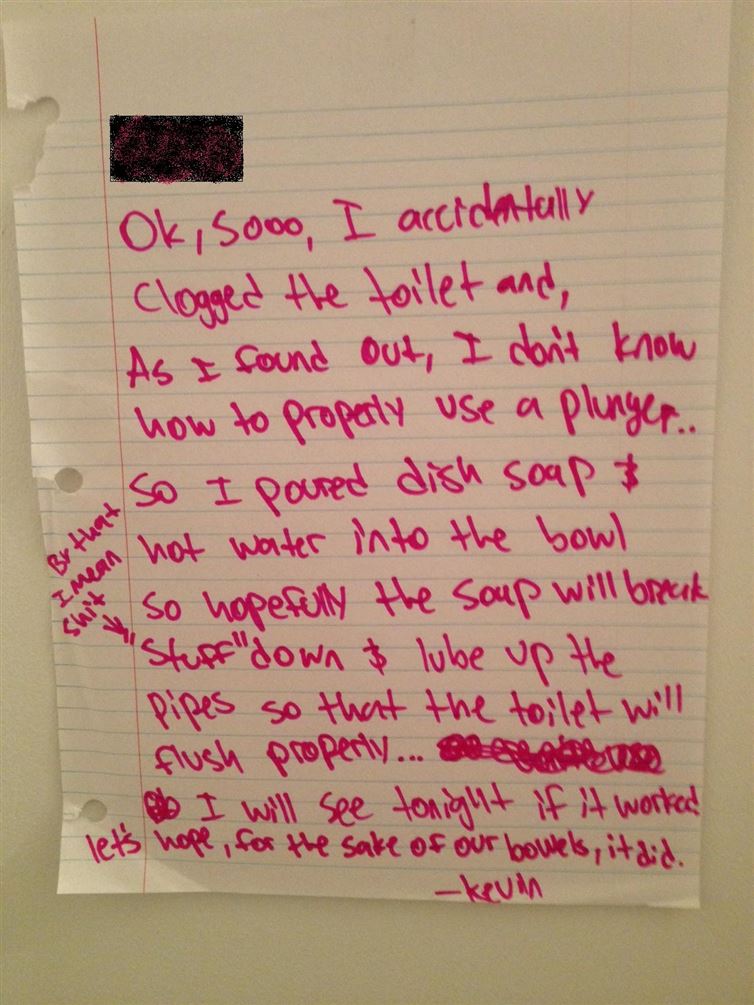 Ok, Sooo, I accidentally
Clogged the toilet and,
As I found out, I don't know
how to properly use a plunger..
So I poured dish soap &
hot water into the bowl
so hopefully the soap will break
"Stuff" down & lube up the
pipes so that the toilet will
flush properly...
I will see tonight if it worked
let's hope, for the sake of our bowels, it did.
—kevin
By that
I mean
shit